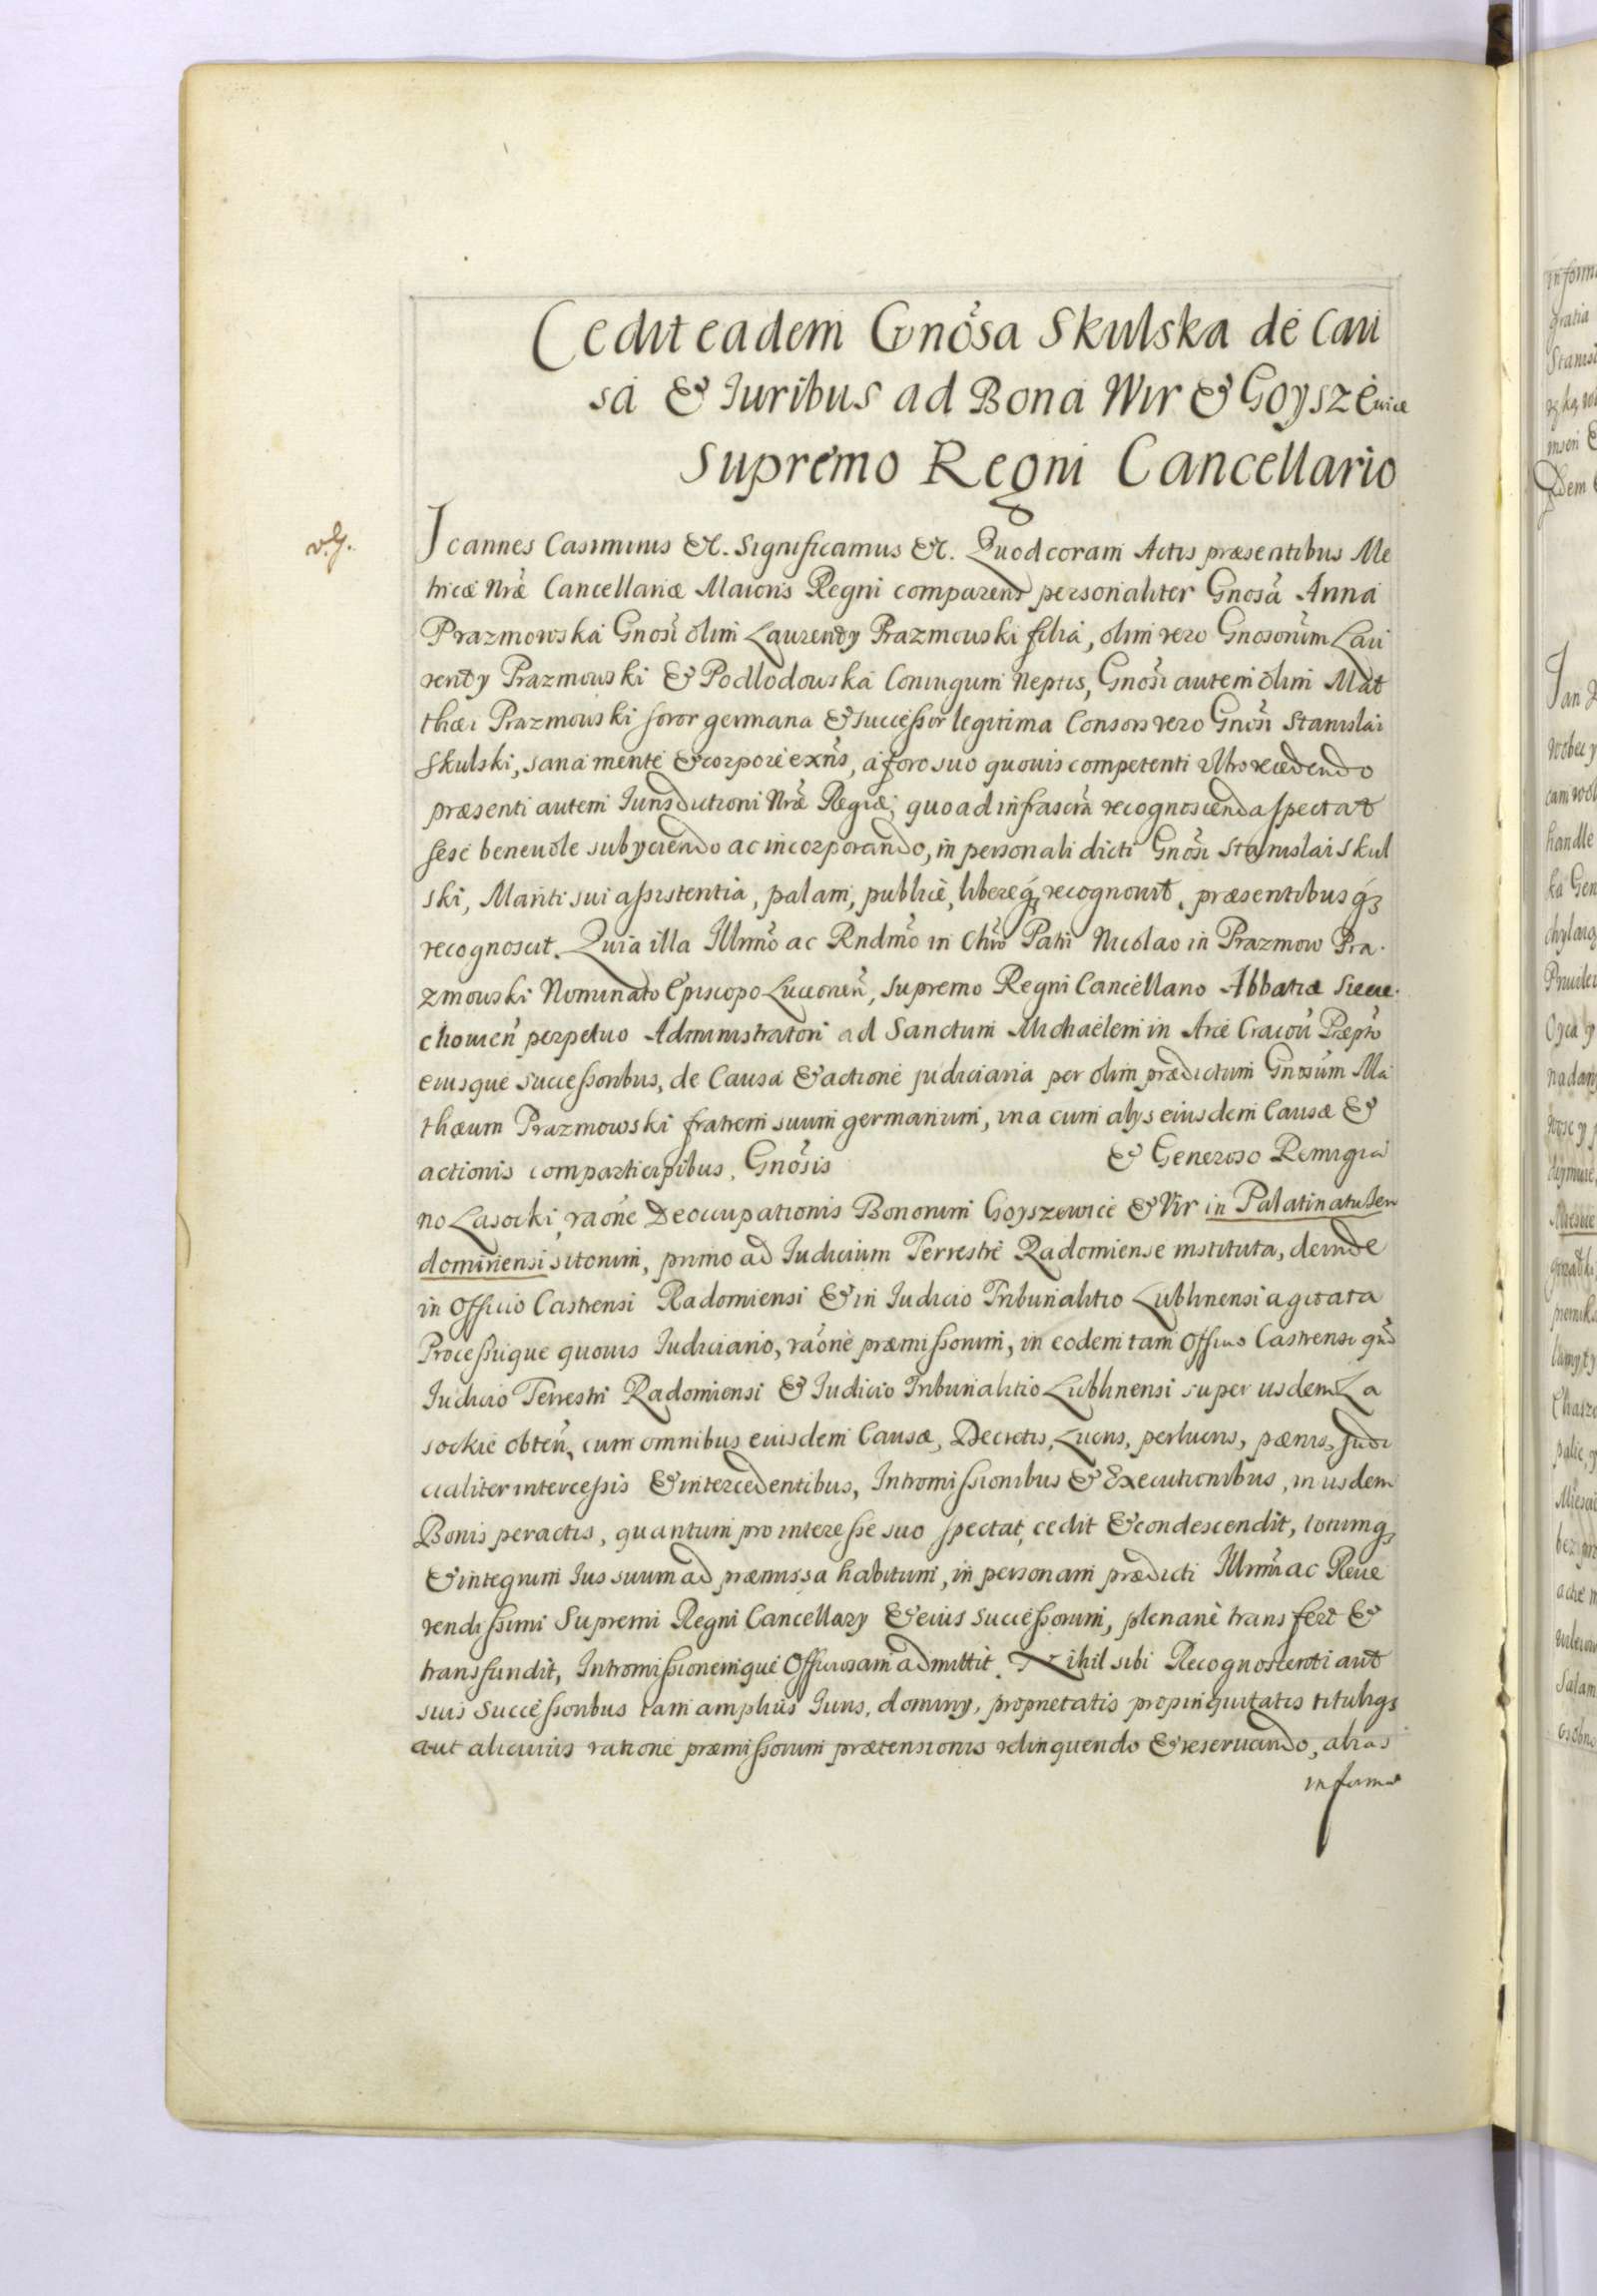 Cedit eadem Gnŏsa Skulska de Cau
sa & Iuribus ad Bona Wir & Goyszewice
Supremo Regni Cancellario
Ioannes Casimirus &c. Significamus &c. Quod coram Actis præsentibus Me
tricæ Nræ Cancellariæ Maioris Regni comparens personaliter Gnosa Anna
Prazmowska Gnosi olim Laurenty Prazmouski filia, olim vero Gnosorum Lau
renty Prazmouski & Podlodouska Coniugum Neptis, Gnosi autem olim Mat
thæi Prazmouski soror germana & successor legitima Consors vero Gnosi Stanislai
Skulski, sana mente & corpore exñs, a foro suo quouis competenti ultro recedendo
præsenti autem Iurisdictioni Nræ Regiæ, quo ad infrascra recognoscenda spectat
sese beneuole subyciendo ac incorporando, in personali dicti Gnosi Stanislai Skul
ski, Mariti sui assistentia, palam, publice, libereq; recognouit, præsentibus q;
recognoscit. Quia illa Illmo ac Rndmo in Chro Patri Nicolao in Prazmow Pra
zmouski Nominato Episcopo Luceoreñ, supremo Regni Cancellario Abbatiæ Siecie
chouieñ perpetuo Administratori ad Sanctum Michaelem in Arce Cracou Præpto
eiusque successoribus, de Causa & actione judiciaria per olim prædictum Gnosum Ma
thæum Prazmowski fratrem suum germanum, una cum alys eiusdem Causæ &
actionis comparticipibus, Gnosis & Generoso Remigia
no Lasocki, raone Deoccupationis Bonorum Goyszewice & Vir in Palatinatu Sen
domiriensi sitorum, primo ad Iudicium Terrestre Radomiense instituta, deinde
in Officio Castrensi Radomiensi & in Iudicio Tribunalitio Lublinensi agitata
Processuque quouis Iudiciario, raone præmissorum, in eodem tam Officio Castrensi qm
Iudicio Terrestri Radomiensi & Iudicio Tribunalitio Lublinensi super iisdem La
sockie obteñ, cum omnibus eiusdem Causæ, Decretis, Lucris, perlucris, pænis, Judi
cialiter intercessis & intercedentibus, Intromissionibus & Executionibus, in iisdem
Bonis peractis, quantum pro interesse suo spectat, cedit & condescendit, totumq;
& integrum Ius suum ad præmissa habitum, in personam prædicti Illmi ac Reue
rendissimi Supremi Regni Cancellary & eius successorum, plenarie transfert &
transfundit, Intromissionemque Officiosam admittit. Nihil sibi Recognoscenti aut
suis successoribus iam amplius Iuris, dominy, proprietatis propinquitatis tituliq;
aut alicuius ratione præmissorum prætensionis relinquendo & reseruando, alias
informa